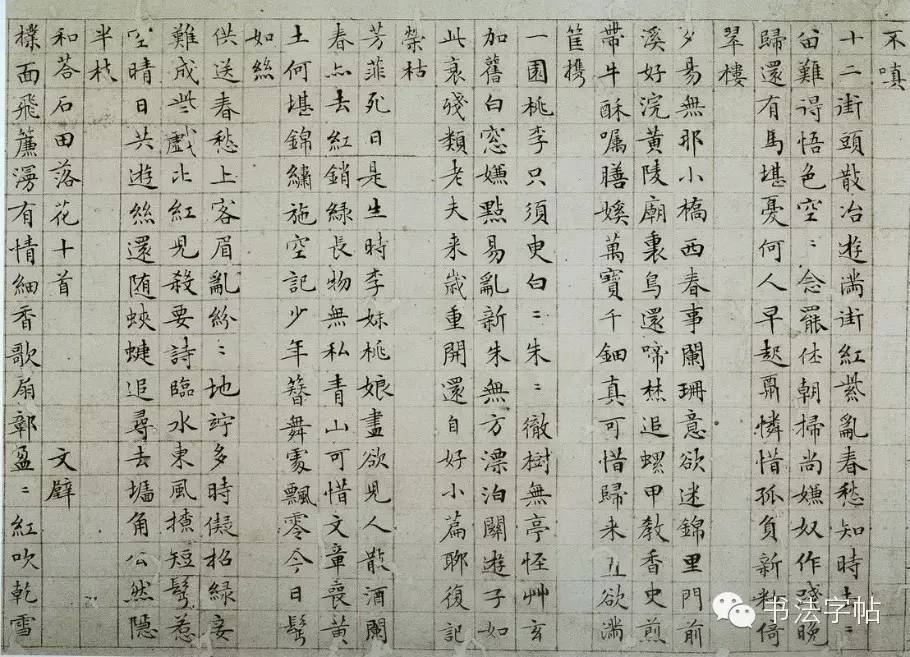 不嗔
十二街頭散冶遊滿街紅紫亂春愁知時去〻
留難得悟色空〻念罷休朝掃尚嫌奴作踐晚
歸還有馬堪憂何人早起肩憐惜孤負新粧倚
翠樓
夕易無那小橋西春事闌珊意欲迷錦里門前
溪好浣黃陵廟裏鳥還啼焚追螺甲教香史煎
帶牛酥囑膳媛萬寶千鈿真可惜歸来直欲滿
筐攜
一園桃李只須臾白〻朱〻徹樹無亭怪艸玄
加舊白窓嫌點易亂新朱無方漂泊關遊子如
此衰殘類老夫来歲重開還自好小篇聊復記
榮枯
芳菲死日是生時李妹桃娘盡欲兒人散酒闌
春亦去紅銷綠長物無私青山可惜文章喪黃
土何堪錦繡施空記少年簪舞處飄零今日鬢
如絲
供送春愁上客眉亂紛〻地竚多時儗招綠妾
難成些戲比紅兒殺要詩臨水東風撩短鬢惹
空晴日共遊絲還隨蛺蜨追尋去墻角公然隱
半枝
和荅石田落花十首 文壁
撲面飛簾漫有情細香歌扇鄣盈〻紅吹乾雪
书法字帖